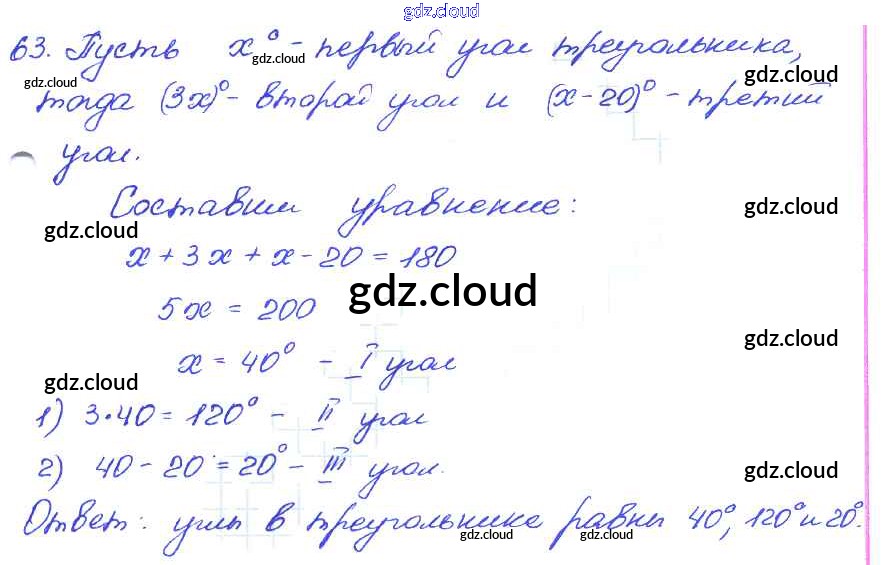 gdz.cloud
63. Пусть x° - первый угол треугольника,
gdz.cloud gdz.cloud gdz.cloud
тогда (3x)° - второй угол и (x-20)° - третий
угол.
Составим уравнение:
gdz.cloud gdz.cloud
x + 3x + x - 20 = 180
gdz.cloud
5x = 200
gdz.cloud
x = 40° - I угол
gdz.cloud
1) 3·40 = 120° - II угол
2) 40 - 20 = 20° - III угол.
gdz.cloud
Ответ: углы в треугольнике равны 40°, 120° и 20°.
gdz.cloud gdz.cloud